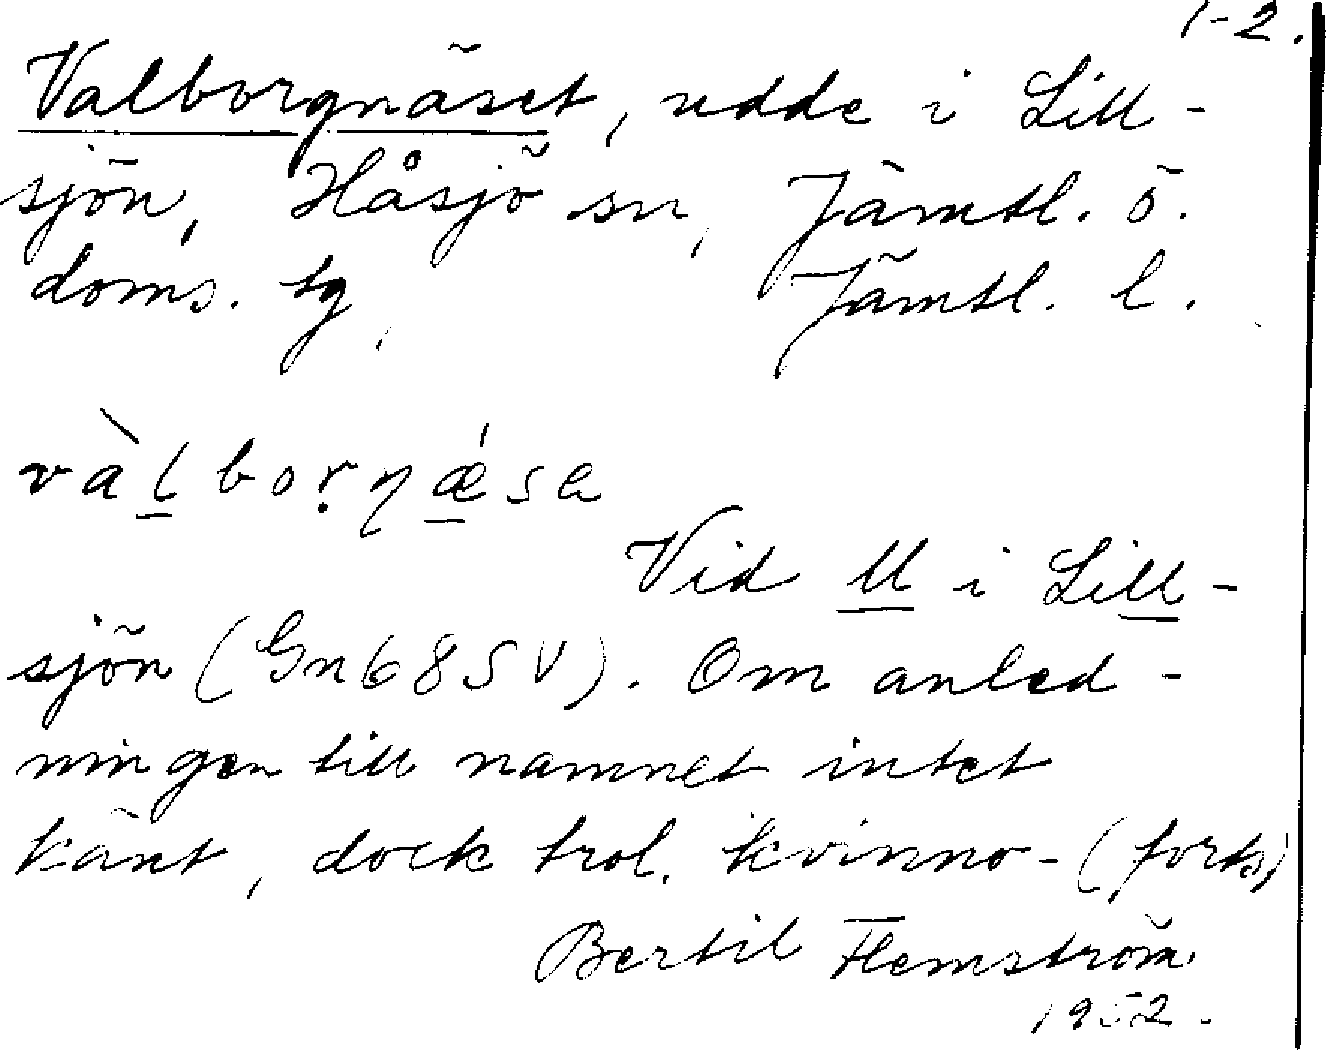 1-2.
Valborgnäset, udde i Lill-
sjön, Håsjö sn, Jämtl. ö.
doms. tg, Jämtl. l.
Vid ll i Lill-
sjön (Gn 68 SV). Om anled-
ningen till namnet intet
känt, dock trol. kvinno- (forts)
Bertil Flemström
1952.